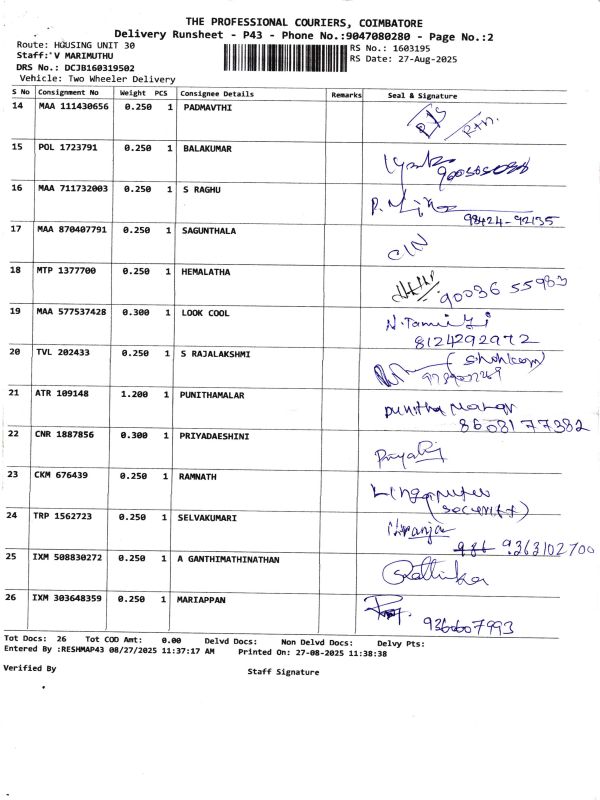 THE PROFESSIONAL COURIERS, COIMBATORE
Delivery Runsheet - P43 - Phone No.:9047080280 - Page No.:2
Route: HOUSING UNIT 30
RS No.: 1603195
Staff: V MARIMUTHU
RS Date: 27-Aug-2025
DRS No.: DCJB160319502
Vehicle: Two Wheeler Delivery
S No Consignment No Weight PCS Consignee Details Remarks Seal & Signature
14 MAA 111430656 0.250 1 PADMAVTHI
15 POL 1723791 0.250 1 BALAKUMAR
16 MAA 711732003 0.250 1 S RAGHU
98424-92135
17 MAA 870407791 0.250 1 SAGUNTHALA
18 MTP 1377700 0.250 1 HEMALATHA
90036 55983
19 MAA 577537428 0.300 1 LOOK COOL
8124292972
20 TVL 202433 0.250 1 S RAJALAKSHMI
21 ATR 109148 1.200 1 PUNITHAMALAR
86081 77382
22 CNR 1887856 0.300 1 PRIYADAESHINI
23 CKM 676439 0.250 1 RAMNATH
(security)
24 TRP 1562723 0.250 1 SELVAKUMARI
9363102700
25 IXM 508830272 0.250 1 A GANTHIMATHINATHAN
26 IXM 303648359 0.250 1 MARIAPPAN
9360607993
Tot Docs: 26 Tot COD Amt: 0.00 Delvd Docs: Non Delvd Docs: Delvy Pts:
Entered By :RESHMAP43 08/27/2025 11:37:17 AM Printed On: 27-08-2025 11:38:38
Verified By
Staff Signature